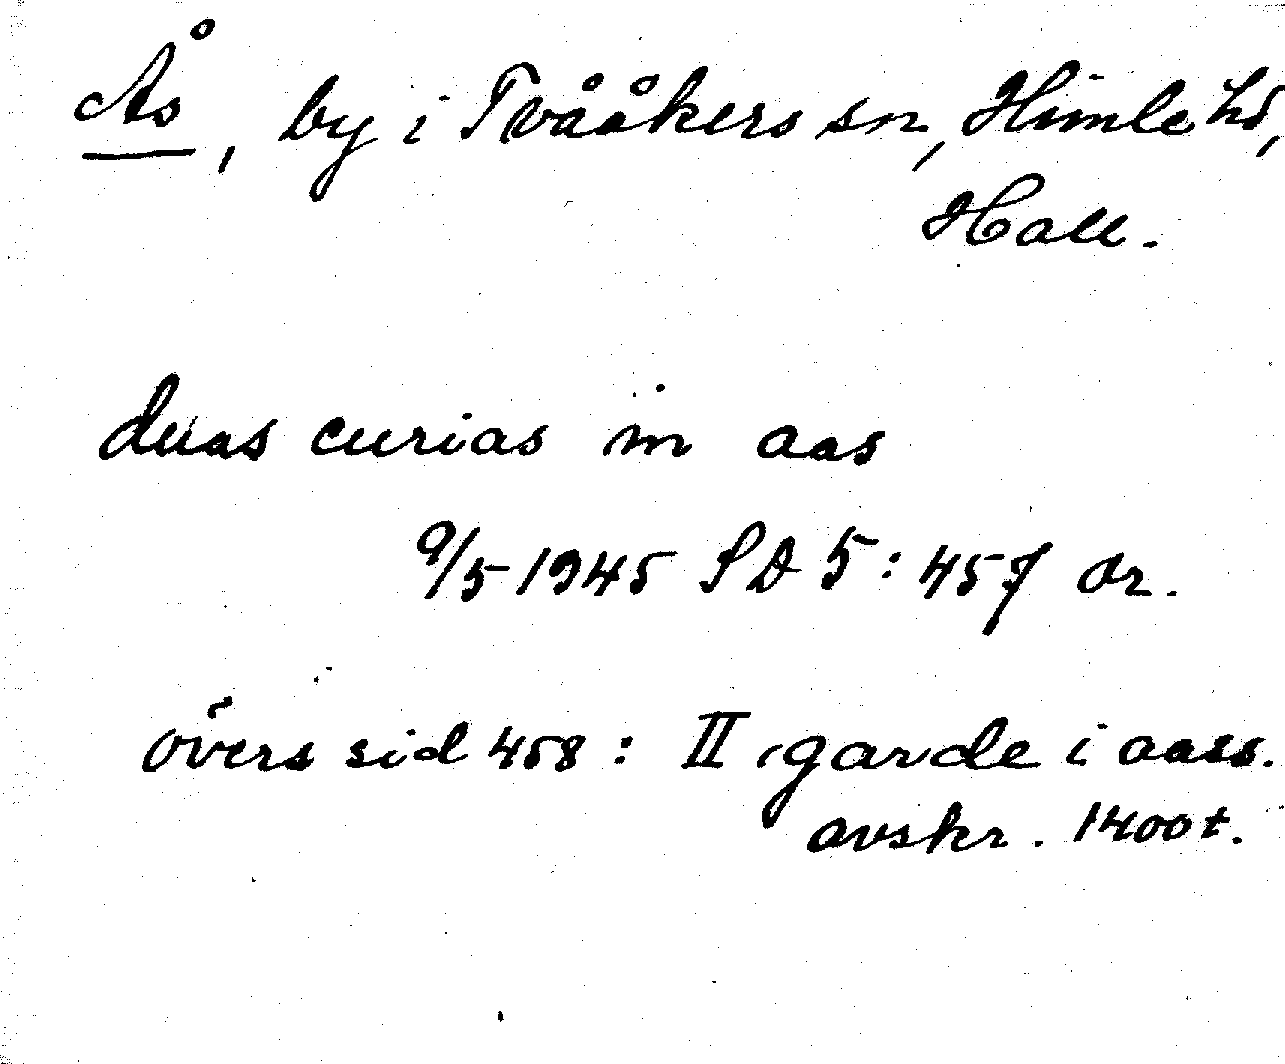 Ås, by i Tvååkers sn, Himle hd,
Hall.
duas curias in aas
9/5 1945 SD 5: 457 or.
övers sid 458: II garde i aass.
avskr. 1400t.